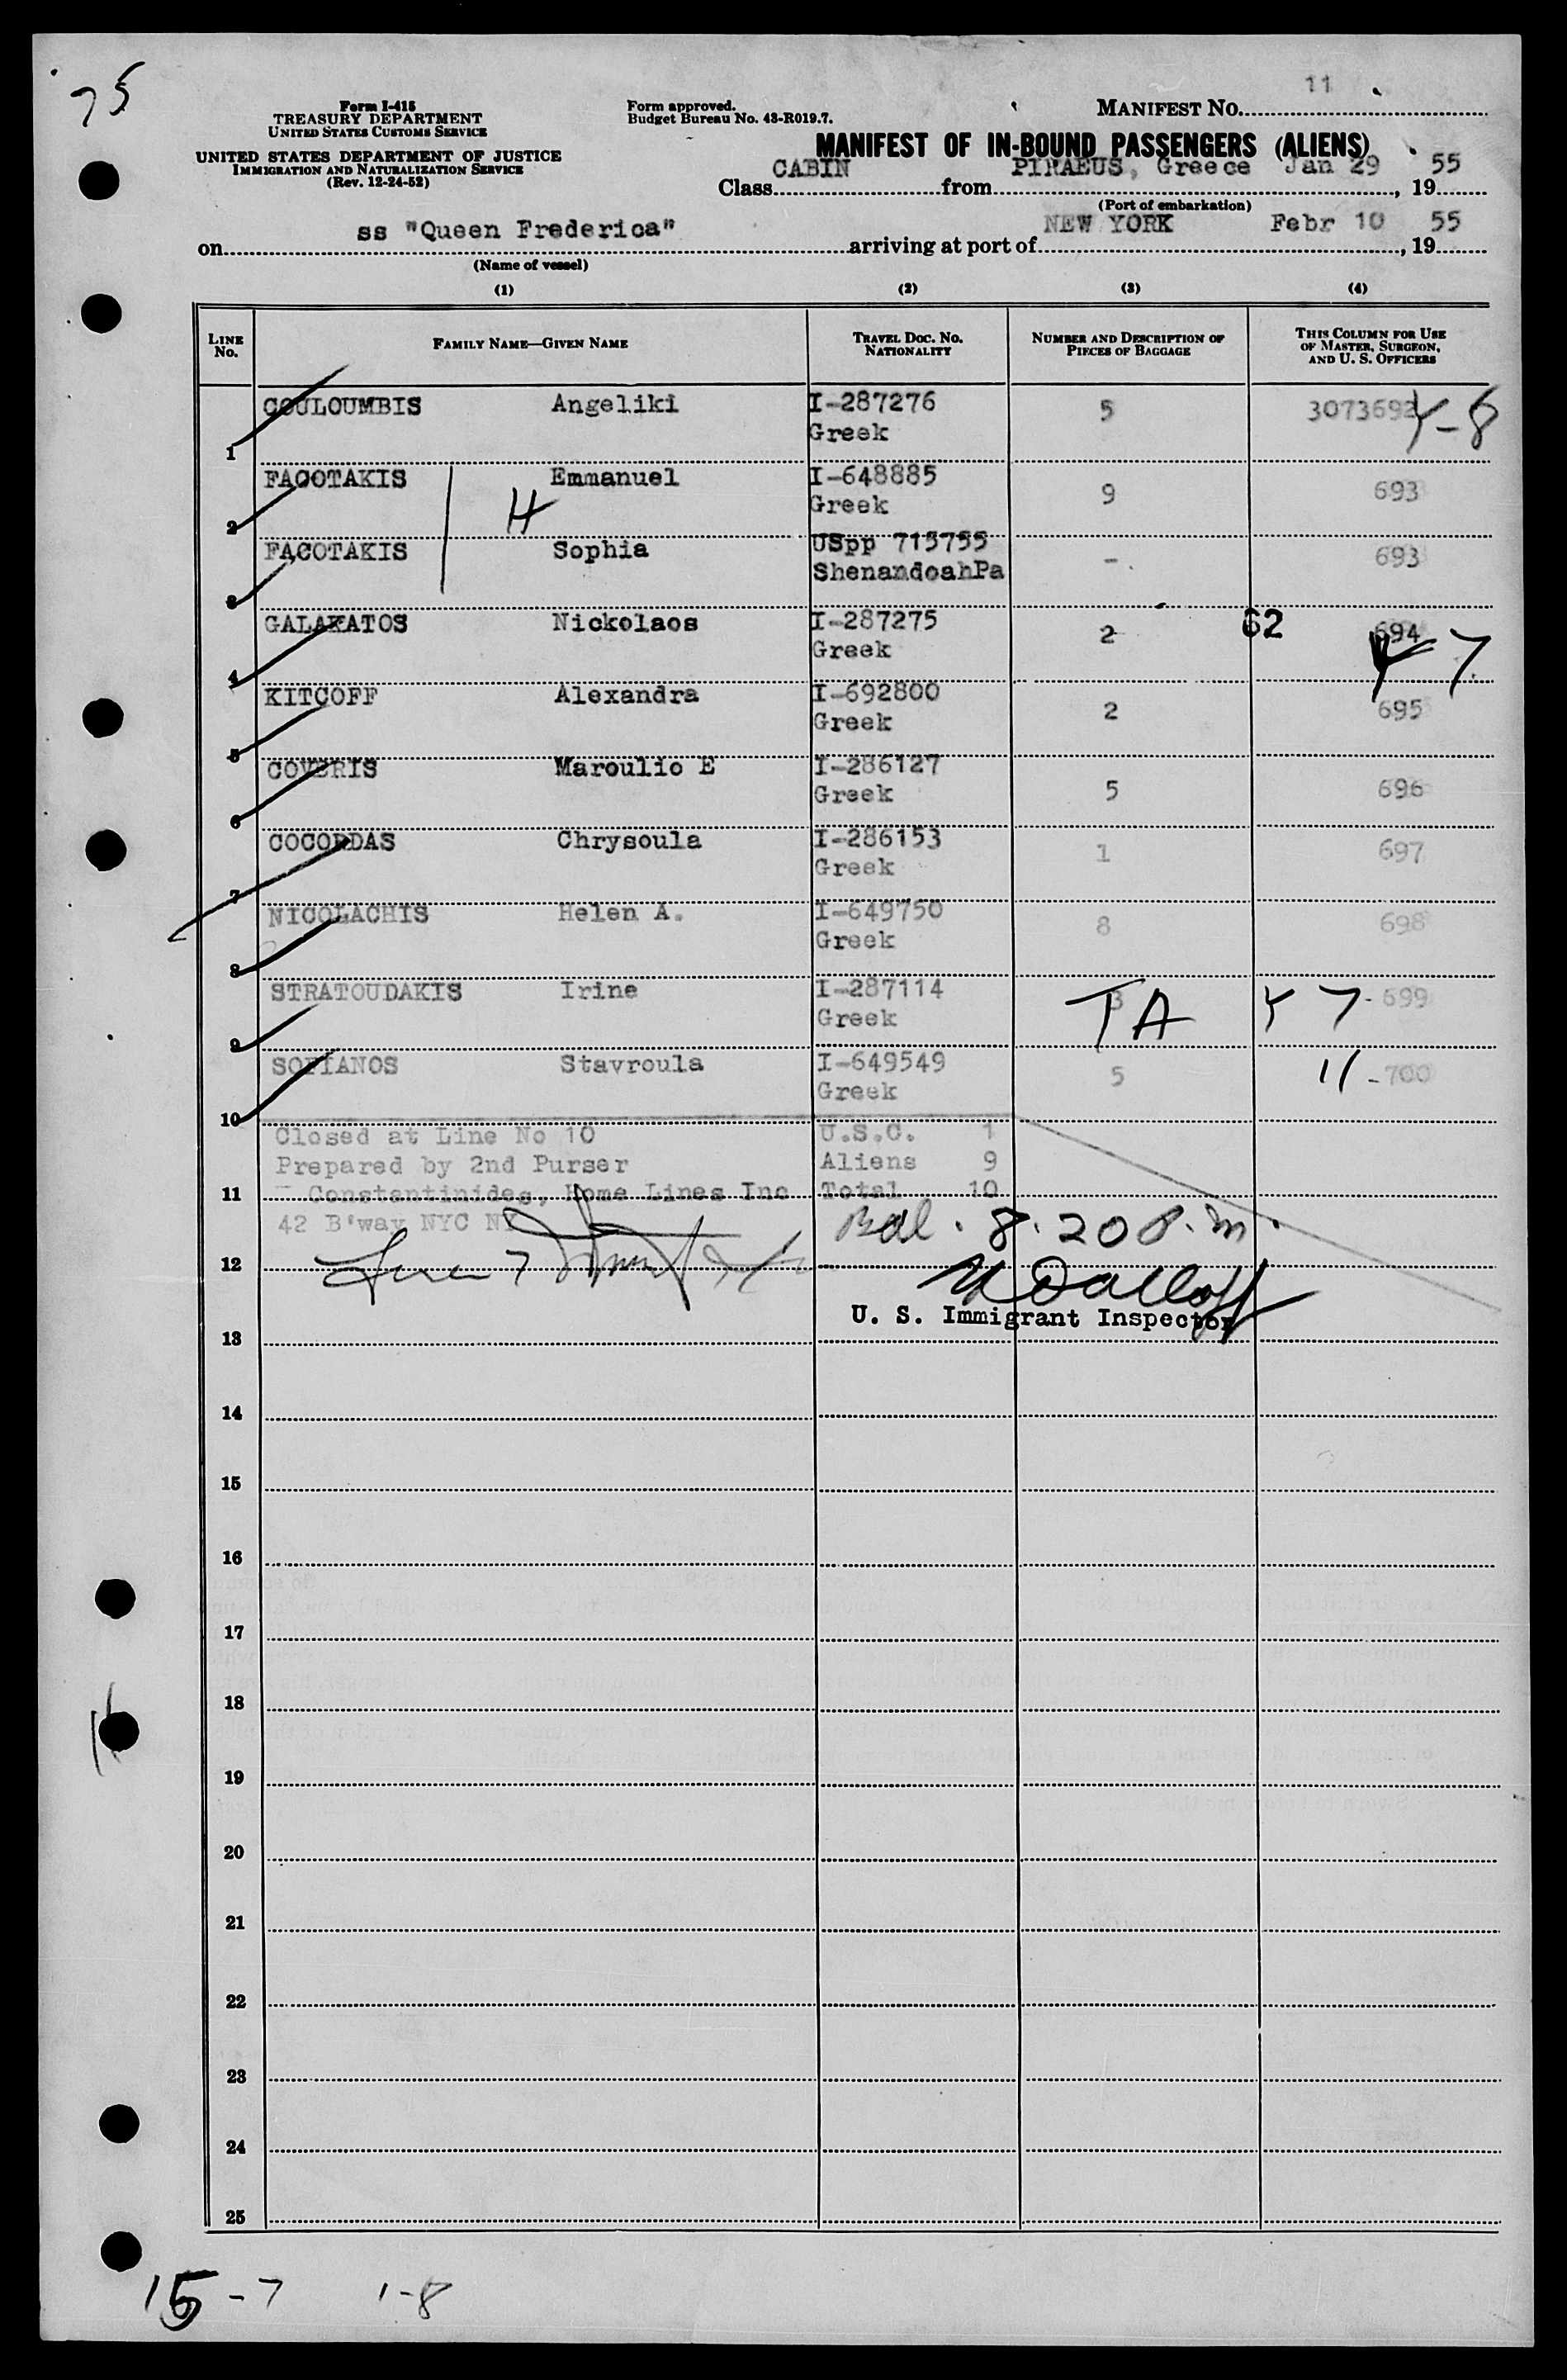 75
Form I-415
TREASURY DEPARTMENT
UNITED STATES CUSTOMS SERVICE
UNITED STATES DEPARTMENT OF JUSTICE
IMMIGRATION AND NATURALIZATION SERVICE
(Rev. 12-24-52)
Form approved.
Budget Bureau No. 43-R019.7.
MANIFEST NO. 11
MANIFEST OF IN-BOUND PASSENGERS (ALIENS)
Class CABIN from PIRAEUS, Greece Jan 29, 1955
(Port of embarkation)
on ss "Queen Frederica" arriving at port of NEW YORK Febr 10, 1955
(Name of vessel)
(1) (2) (3) (4)
LINE No. FAMILY NAME—GIVEN NAME TRAVEL DOC. NO. NATIONALITY NUMBER AND DESCRIPTION OF PIECES OF BAGGAGE THIS COLUMN FOR USE OF MASTER, SURGEON, AND U. S. OFFICERS
1 COULOUMBIS Angeliki I-287276 Greek 5 3073692 Y-8
2 FACOTAKIS Emmanuel I-648885 Greek 9 693
H
3 FACOTAKIS Sophia USpp 715755 ShenandoahPa - 693
4 GALAKATOS Nickolaos I-287275 Greek 2 62 694 Y 7
5 KITCOFF Alexandra I-692800 Greek 2 695
6 COVERIS Maroulio E I-286127 Greek 5 696
7 COCORDAS Chrysoula I-286153 Greek 1 697
8 NICOLACHIS Helen A. I-649750 Greek 8 698
9 STRATOUDAKIS Irine I-287114 Greek 3 TA Y 7-699
10 SOFIANOS Stavroula I-649549 Greek 5 11-700
Closed at Line No 10 U.S.C. 1
Prepared by 2nd Purser Aliens 9
11 Constantinides, Home Lines Inc Total 10
42 B'way NYC NY 8.20 P.m.
12
U. S. Immigrant Inspector
13
14
15
16
17
18
19
20
21
22
23
24
25
15-7 1-8